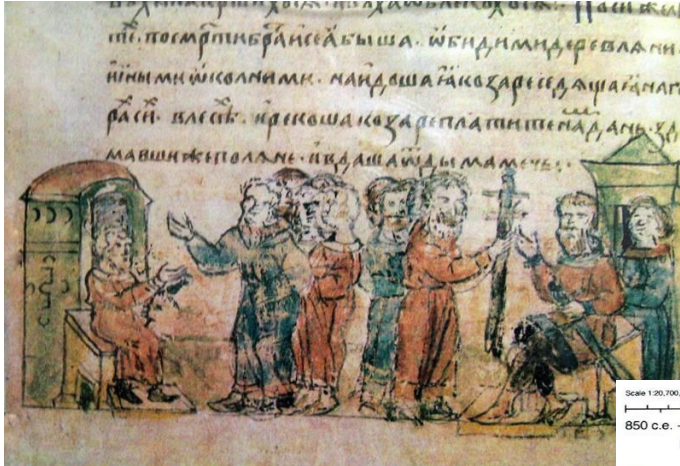 по смр҃ти бра҃и сеꙗ быша. ѡбидими деревлѧни.
иными ѡколними. наидоша ꙗ козаре седѧщаꙗ
в лесѣ. и рекоша козаре платите на дань.
мавши же полѧне. и вдаша ѿ дыма мечь:
Scale 1:20,700,
850 c.e.